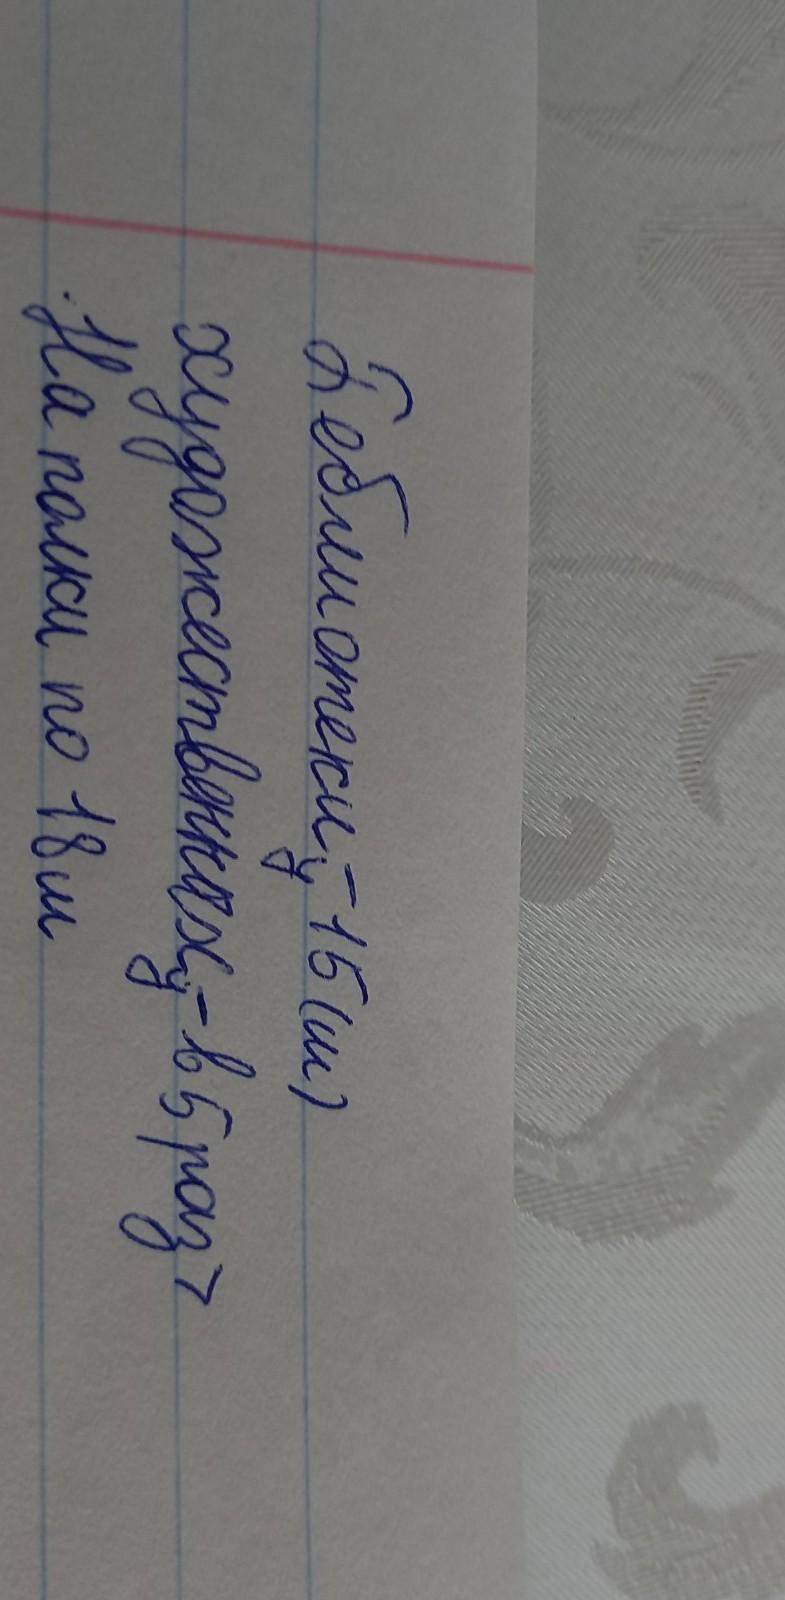 Беблиотеки, - 15 (ш)
художественных, - в 5 раз >
На полки по 18 ш